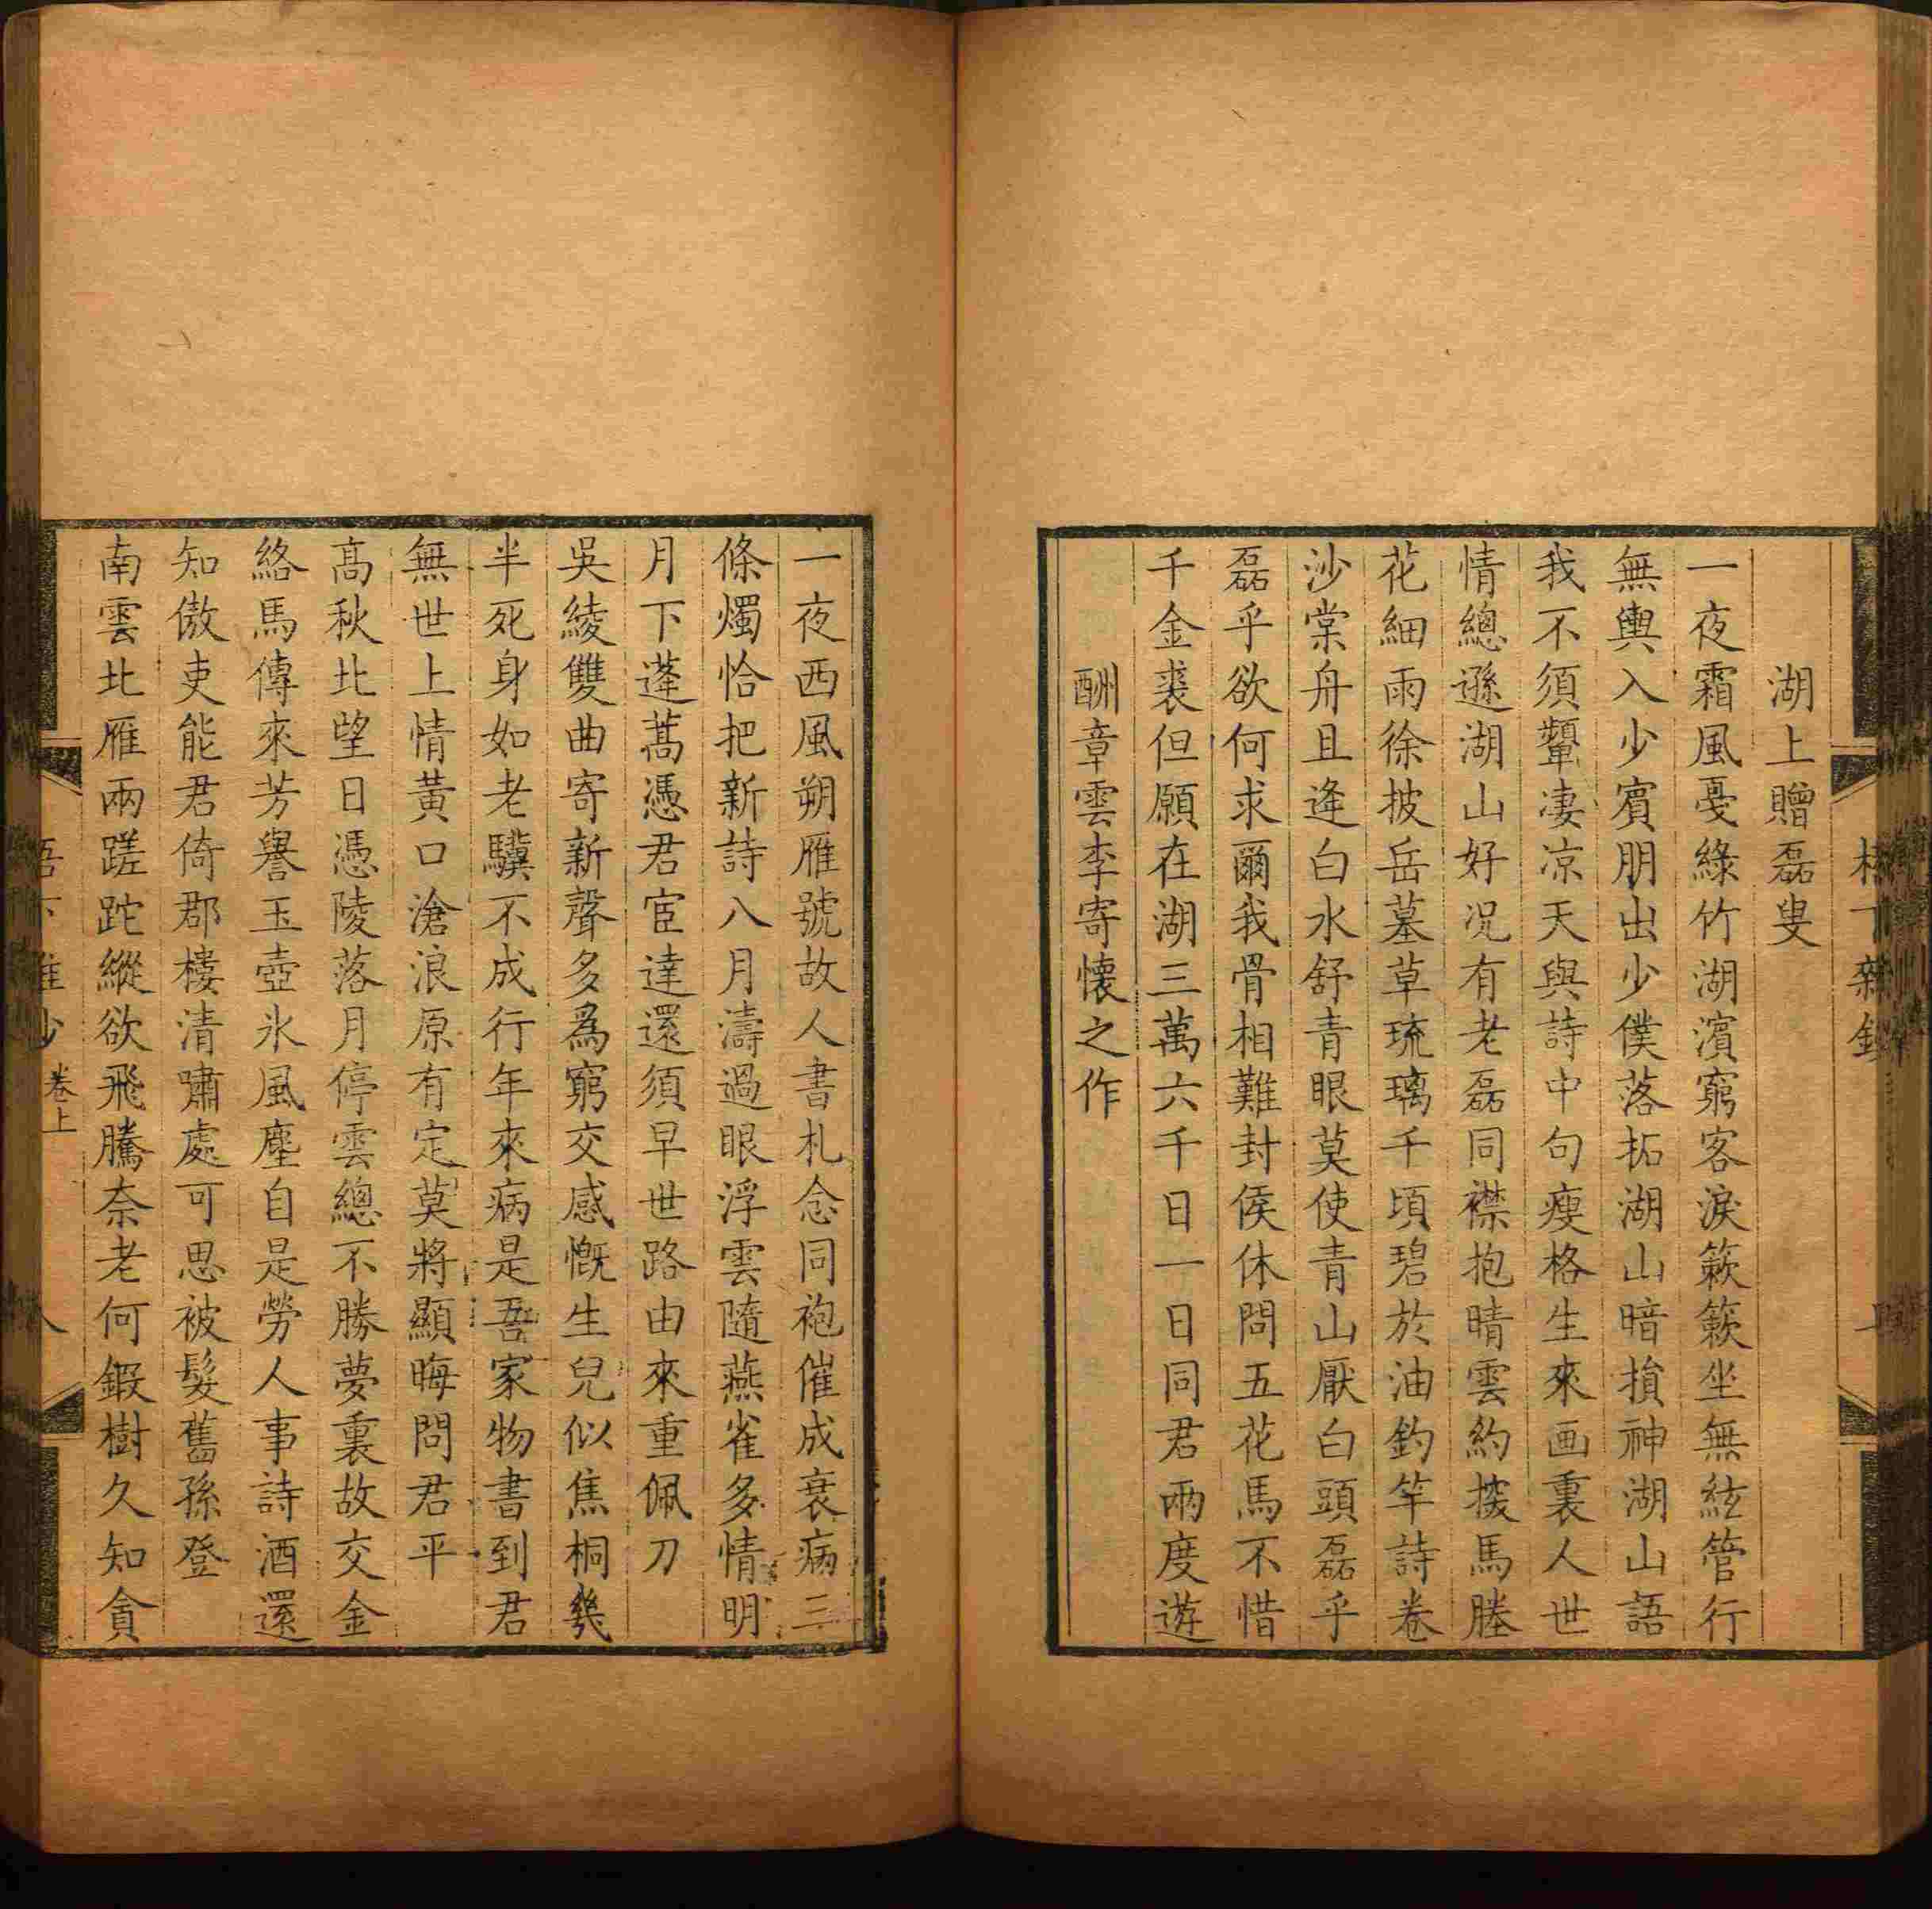 湖上贈磊叟
一夜霜風戞綠竹湖濱窮客淚簌簌坐無絃管行
無輿入少賓朋出少僕落拓湖山暗損神湖山語
我不須顰凄凉天與詩中句瘦格生來画裏人世
情總遜湖山好况有老磊同襟抱晴雲約撥馬塍
花細雨徐披岳墓草琉璃千頃碧於油釣竿詩卷
沙棠舟且逢白水舒青眼莫使青山厭白頭磊乎
磊乎欲何求爾我骨相難封侯休問五花馬不惜
千金裘但願在湖三萬六千日一日同君兩度遊
酬章雲李寄懷之作
一夜西風朔雁號故人書札念同袍催成衰病三
條燭恰把新詩八月濤過眼浮雲隨燕雀多情明
月下蓬蒿憑君宦達還須早世路由來重佩刀
吳綾雙曲寄新聲多為窮交感慨生兒似焦桐㡬
半死身如老驥不成行年來病是吾家物書到君
無世上情黃口滄浪原有定莫將顯晦問君平
髙秋北望日憑陵落月停雲總不勝夢裏故交金
絡馬傳來芳譽玉壺氷風塵自是勞人事詩酒還
知傲吏能君倚郡樓清嘯處可思被髮舊孫登
南雲北雁兩蹉跎縱欲飛騰奈老何鍜樹久知貪
卷上